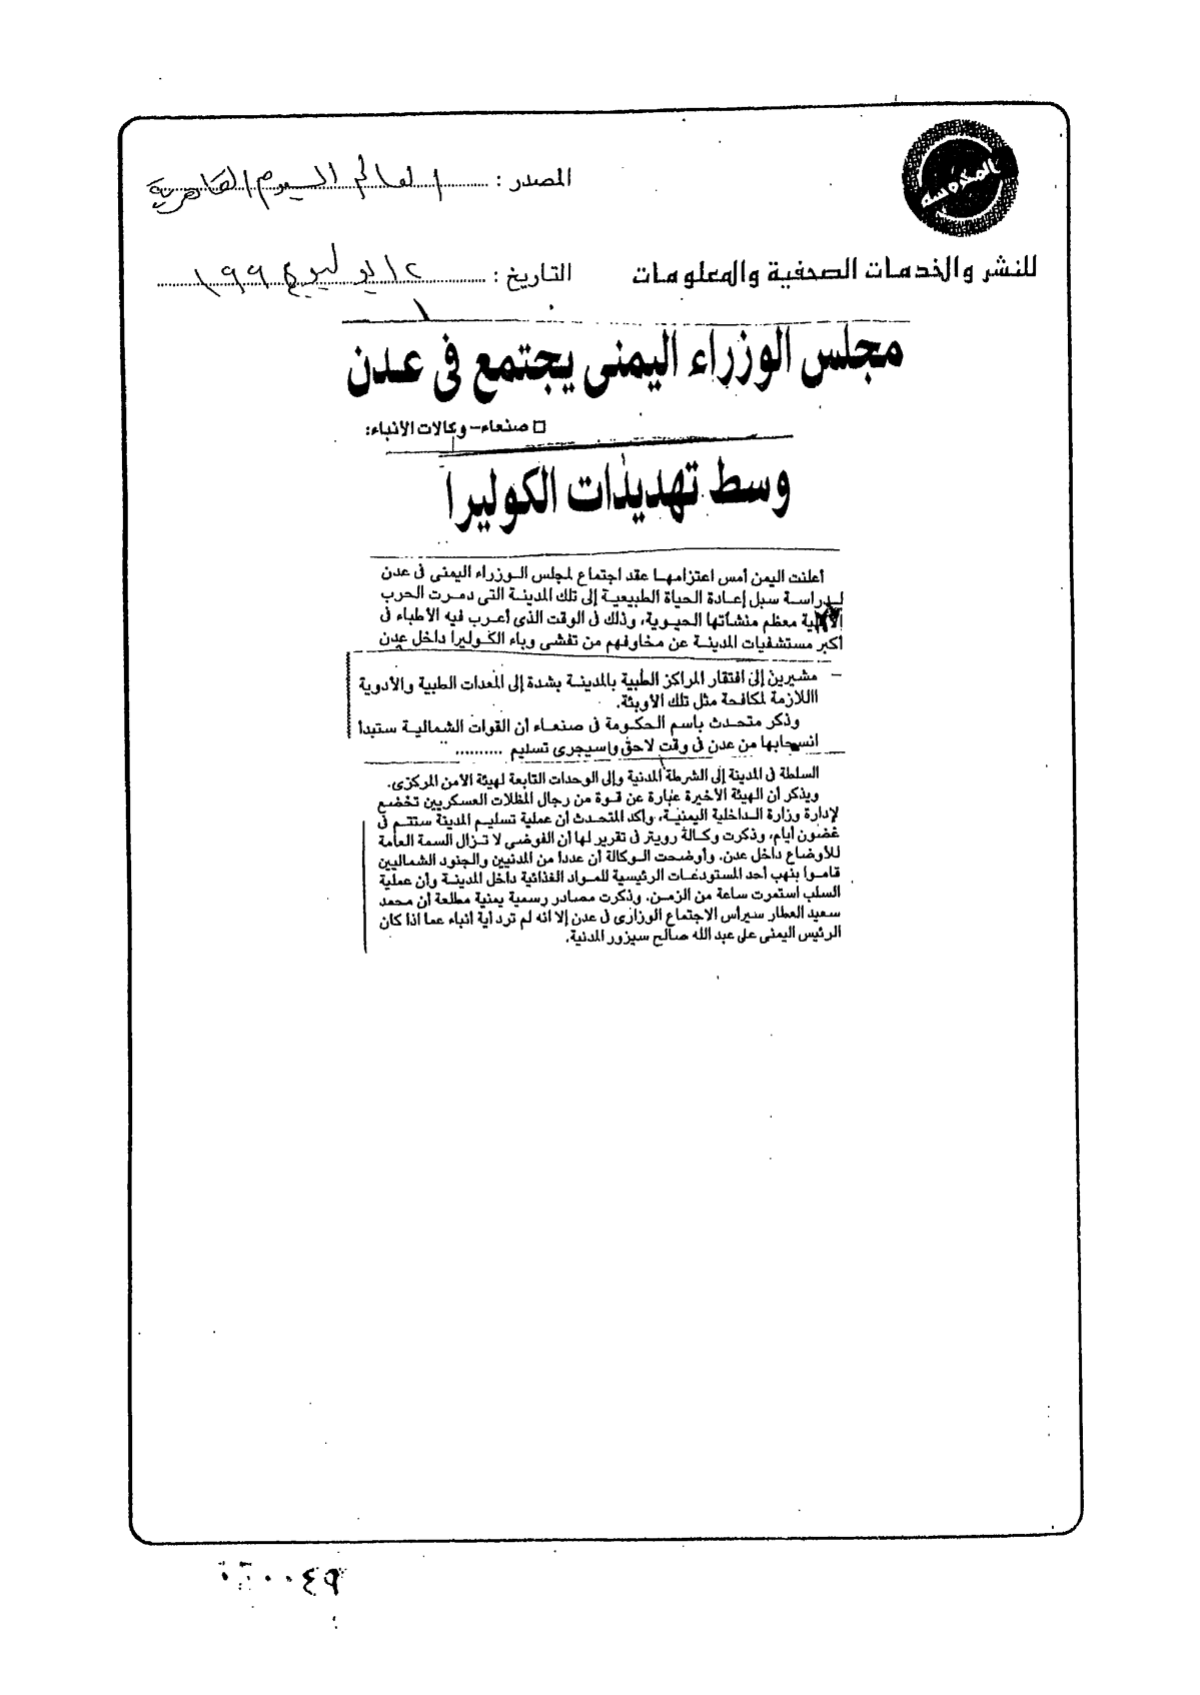 المحروسة
المصدر : العالم اليوم القاهرية
للنشر والخدمات الصحفية والمعلومات
التاريخ : ١٢ يوليو ١٩٩٤
مجلس الوزراء اليمنى يجتمع فى عدن
□ صنعاء- وكالات الأنباء:
وسط تهديدات الكوليرا
أعلنت اليمن أمس اعتزامها عقد اجتماع لمجلس الوزراء اليمنى فى عدن
لدراسة سبل إعادة الحياة الطبيعية إلى تلك المدينة التى دمرت الحرب
الأهلية معظم منشأتها الحيوية، وذلك فى الوقت الذى أعرب فيه الأطباء فى
أكبر مستشفيات المدينة عن مخاوفهم من تفشى وباء الكوليرا داخل عدن
– مشيرين إلى افتقار المراكز الطبية بالمدينة بشدة إلى المعدات الطبية والأدوية
االلازمة لمكافحة مثل تلك الأوبئة.
وذكر متحدث باسم الحكومة فى صنعاء أن القوات الشمالية ستبدأ
انسحابها من عدن فى وقت لاحق واسيجرى تسليم ..........
السلطة فى المدينة إلى الشرطة المدنية وإلى الوحدات التابعة لهيئة الأمن المركزى.
ويذكر أن الهيئة الأخيرة عبارة عن قوة من رجال المظلات العسكريين تخضع
لإدارة وزارة الداخلية اليمنية، وأكد المتحدث أن عملية تسليم المدينة ستتم فى
غضون أيام، وذكرت وكالة رويتر فى تقرير لها أن الفوضى لا تزال السمة العامة
للأوضاع داخل عدن. وأوضحت الوكالة أن عددا من المدنيين والجنود الشماليين
قاموا بنهب أحد المستودعات الرئيسية للمواد الغذائية داخل المدينة وأن عملية
السلب استمرت ساعة من الزمن. وذكرت مصادر رسمية يمنية مطلعة أن محمد
سعيد العطار سيرأس الاجتماع الوزارى فى عدن إلا انه لم ترد أية أنباء عما اذا كان
الرئيس اليمنى على عبد الله صالح سيزور المدنية.